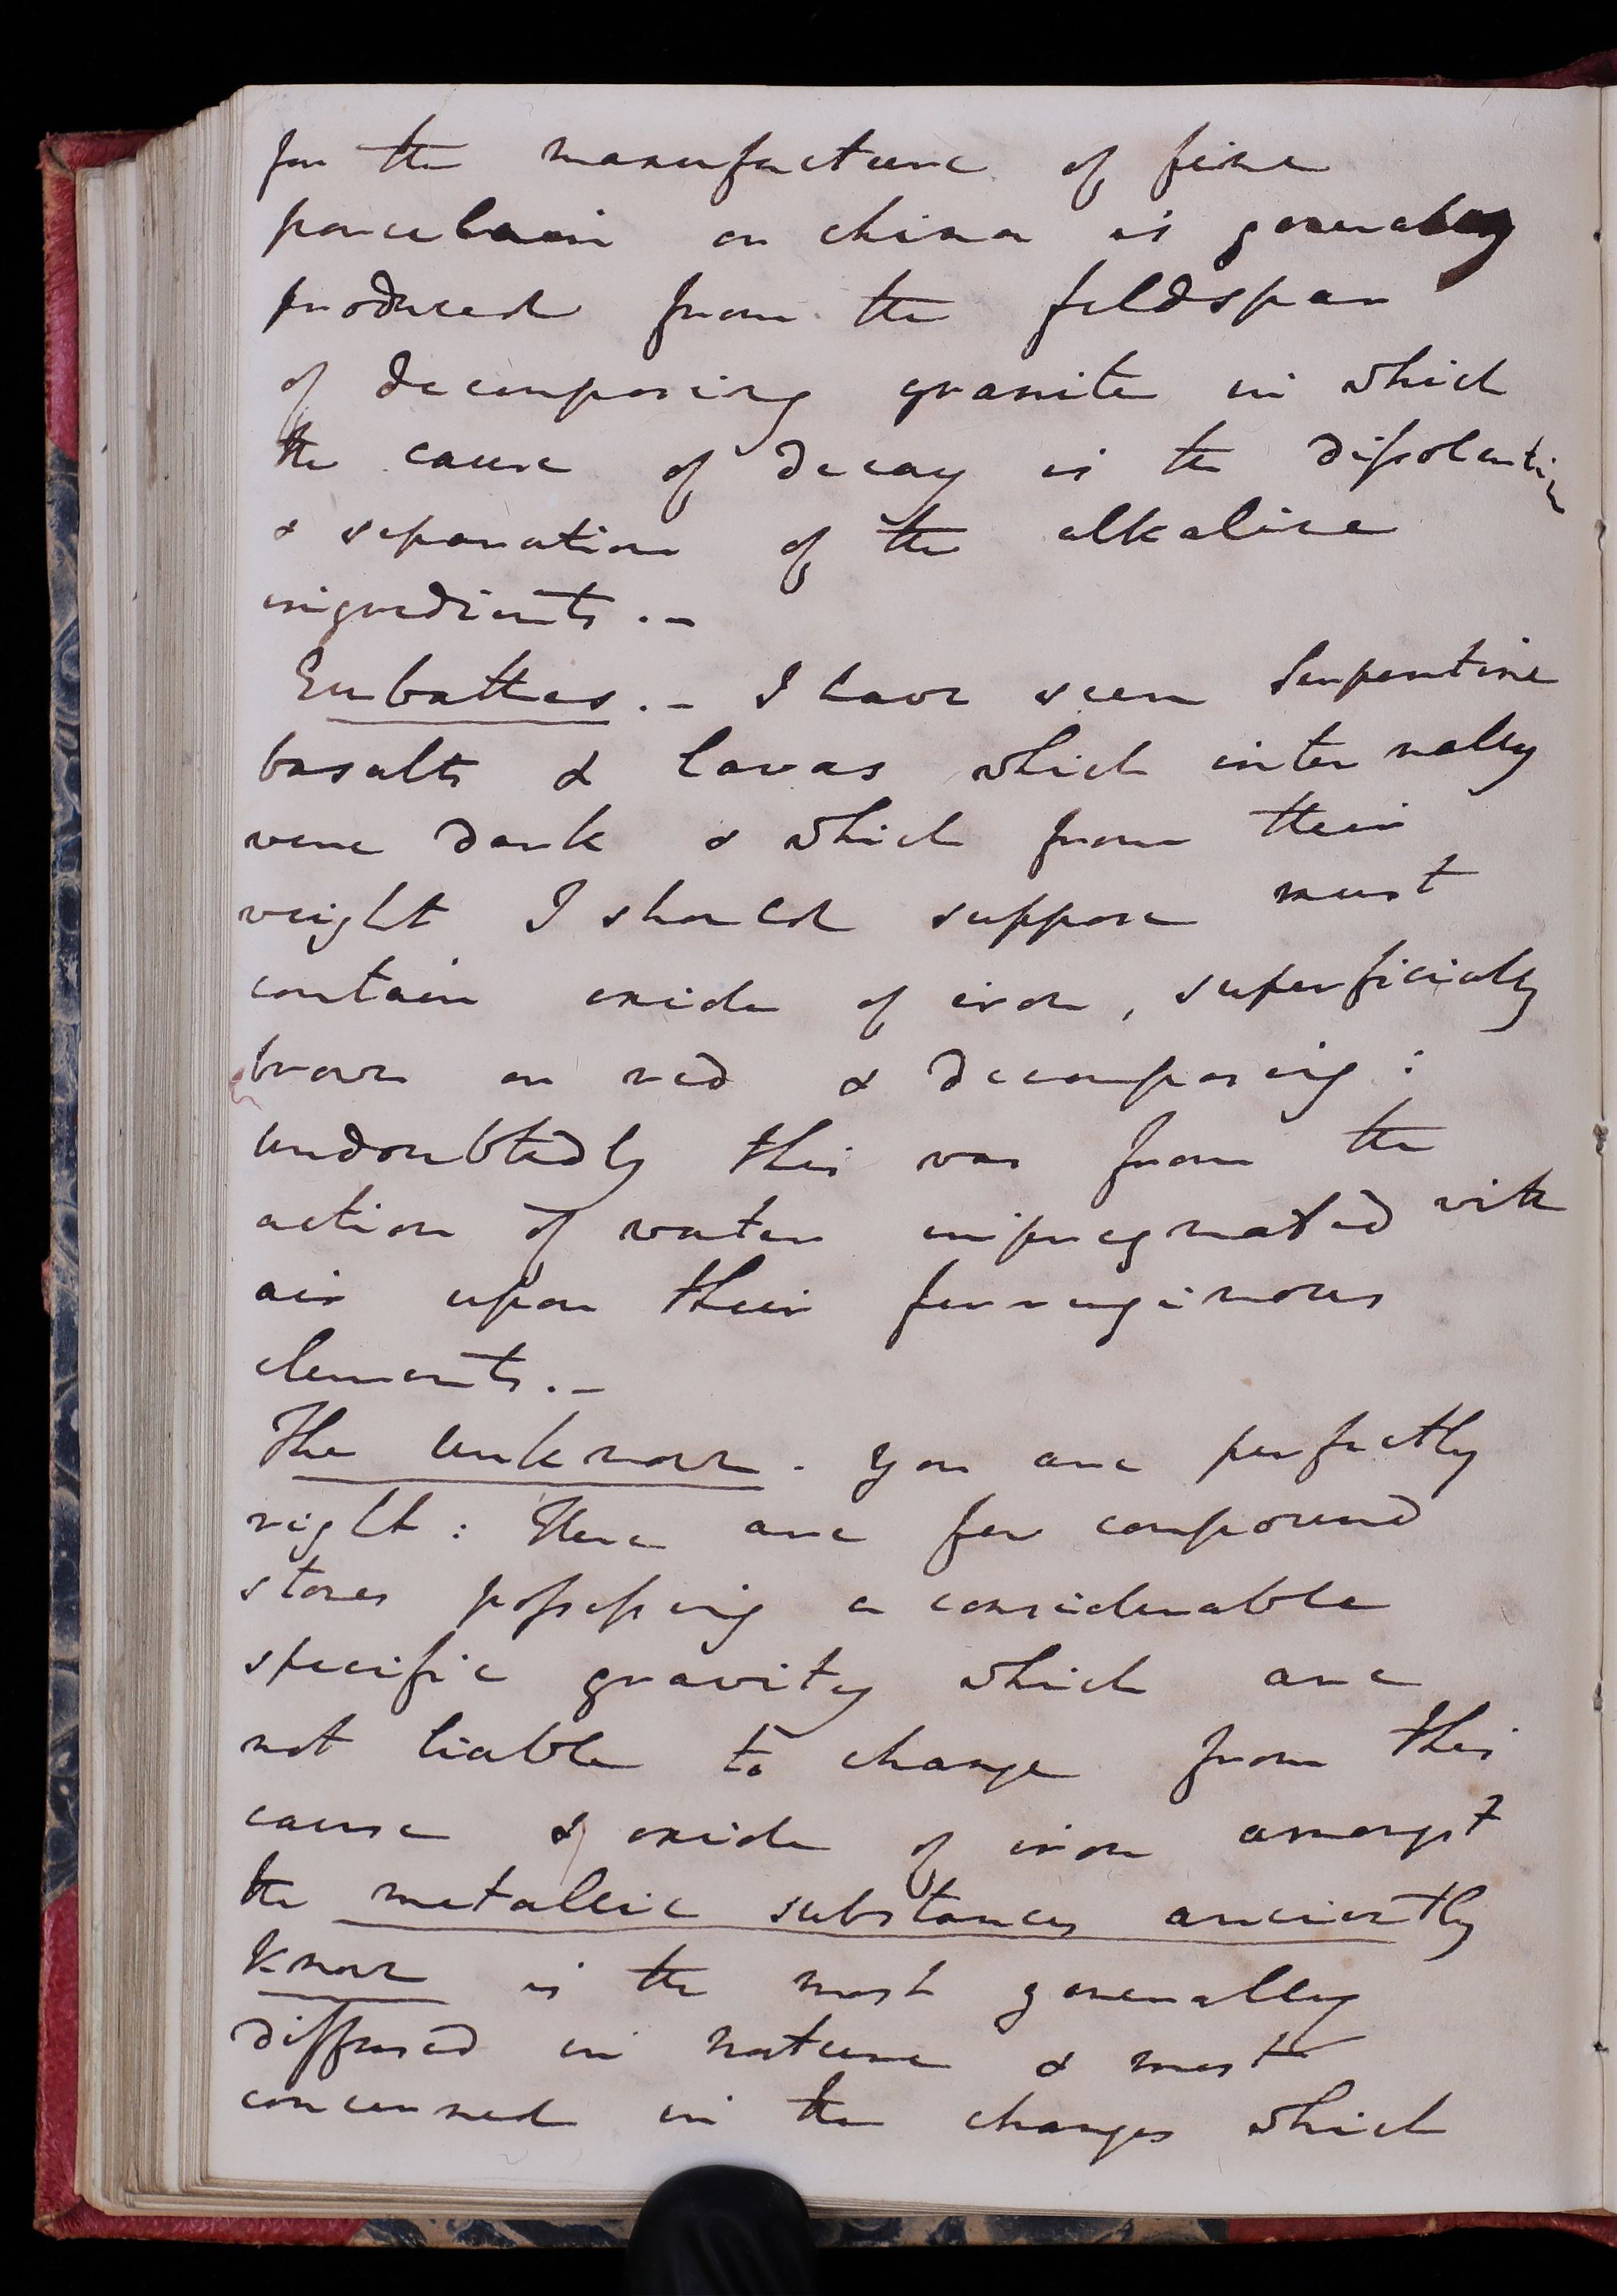 for the manufacture of fine
porcelain or china is generally
produced from the feldspar
of decomposing granite in which
the cause of decay is the dissolution
& separation of the alkaline
ingredients.-
Eubathes.- I have seen Serpentine
basalts & lavas which internally
were dark & which from their
weight I should suppose must
contain oxide of iron, superficially
brown or red & decomposing:
undoubtedly this was from the
action of water impregnated with
air upon their ferruginous
elements.-
The unknown. you are perfectly
right: There are few compound
stones possessing a considerable
specific gravity which are
not liable to change from this
cause & oxide of iron amongst
the metallic substances anciently
known is the most generally
diffused in nature & most
concerned in the changes which